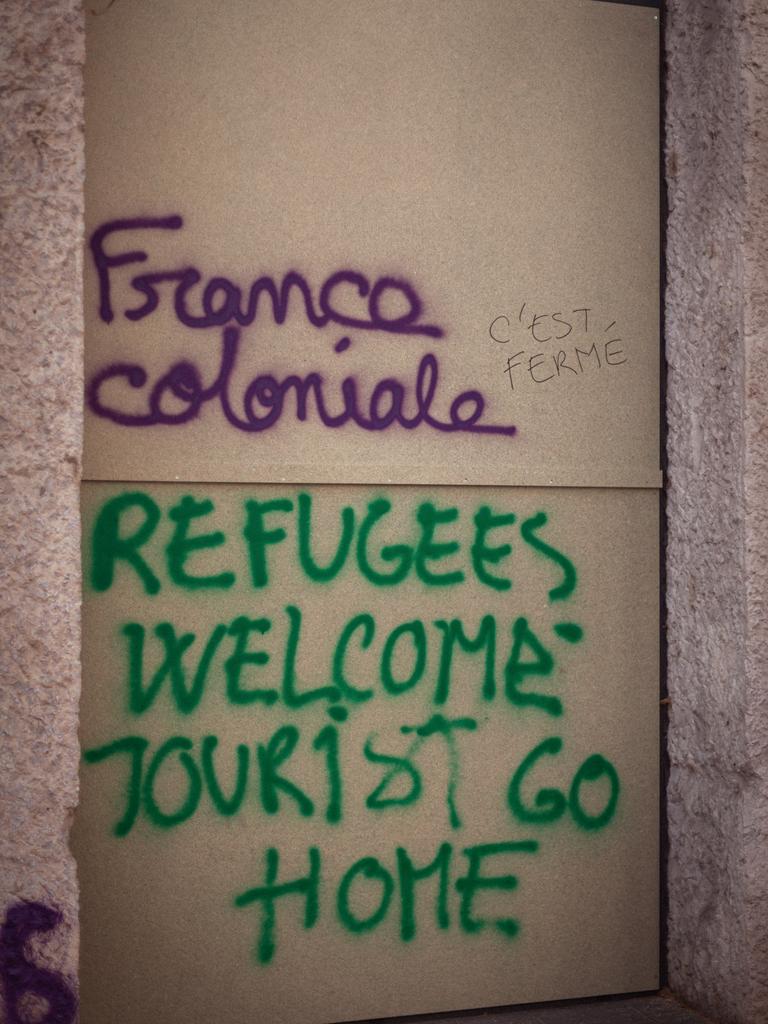 France
coloniale
C'EST
FERMÉ
REFUGEES
WELCOME
TOURIST GO
HOME